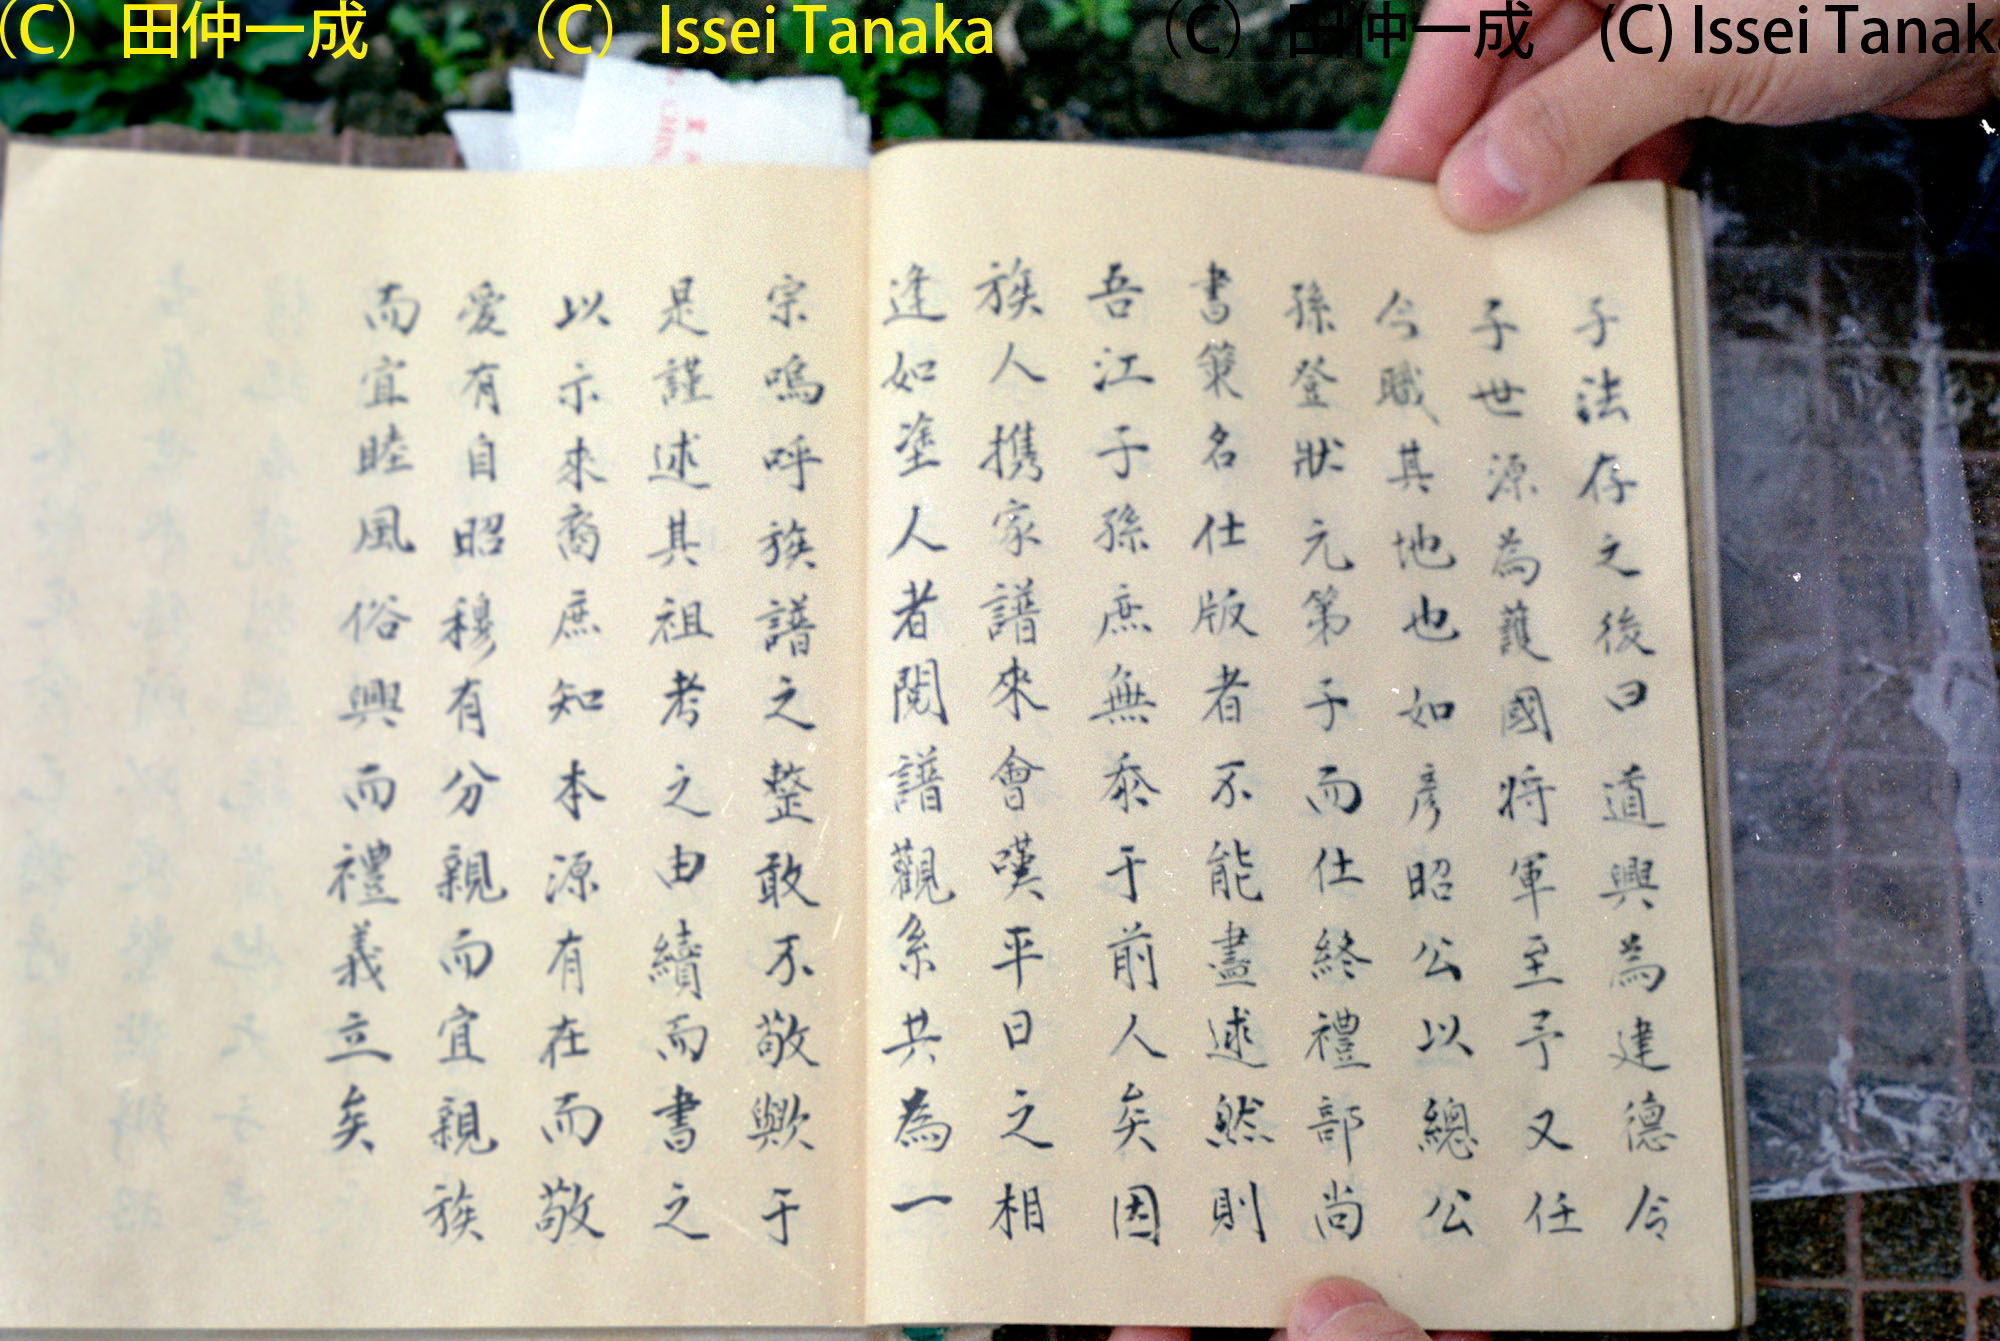 (C) 田仲一成 (C) Issei Tanaka (C) 田仲一成 (C) Issei Tanaka
子法存之後曰道興為建德令
子世源為護國將軍至予又任
今職其地也也如彥昭公以總公
孫登狀元第子而仕終禮部尚
書策名仕版者不能盡述然則
吾江子孫庶無忝于前人矣因
族人携家譜來會嘆平日之相
逢如塗人者閱譜觀系共為一
宗嗚呼族譜之整敢不敬歟于
是謹述其祖考之由續而書之
以示來裔庶知本源有在而敬
愛有自昭穆有分親而宜親族
而宜睦風俗興而禮義立矣